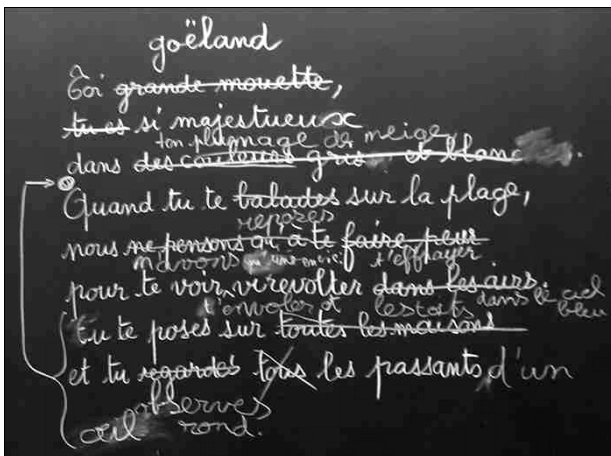 goëland
Toi grande mouette,
tu es si majestueux
ton plumage de neige
dans des couleurs gris et blanc.
Quand tu te balades sur la plage,
reposes
nous ne pensons qu'à te faire peur
n'avons qu'une envie : t'effrayer
pour te voir virevolter dans les airs.
t'envoler et dans le ciel bleu
les toits
tu te poses sur toutes les maisons
et tu regardes tous les passants d'un
observes
œil rond.